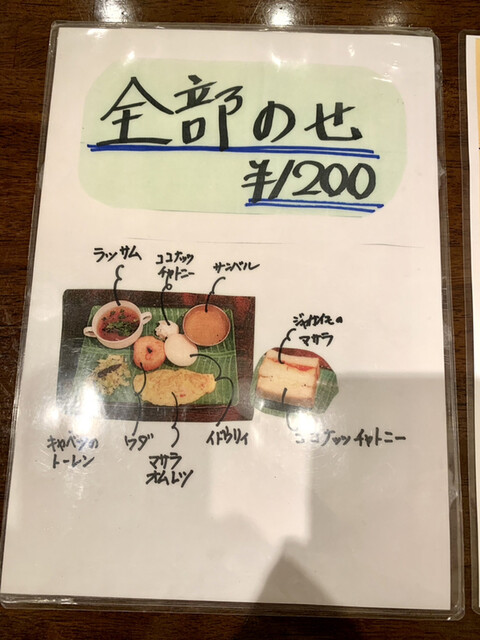 全部のせ
¥1200
ラッサム
ココナッツ
チャトニー
サンバル
ジャガイモの
マサラ
キャベツの
トーレン
ワダ
マサラ
オムレツ
イドゥリィ
ココナッツチャトニー